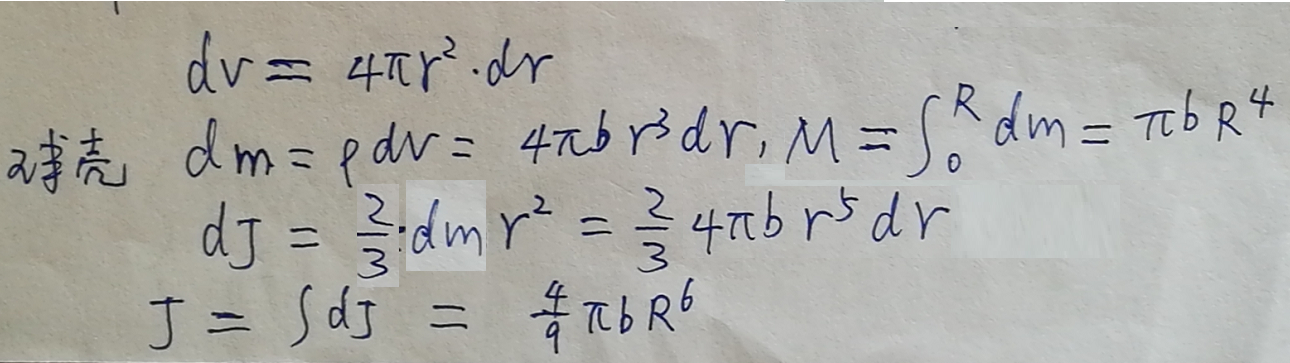 dv = 4πr²·dr
球壳 dm = ρdv = 4πb r³dr, M = ∫₀ᴿ dm = πbR⁴
dJ = 2/3·dm r² = 2/3 4πb r⁵ dr
J = ∫dJ = 4/9 πbR⁶